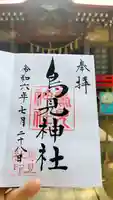 奉拝
鳥見神社
令和六年七月二十八日